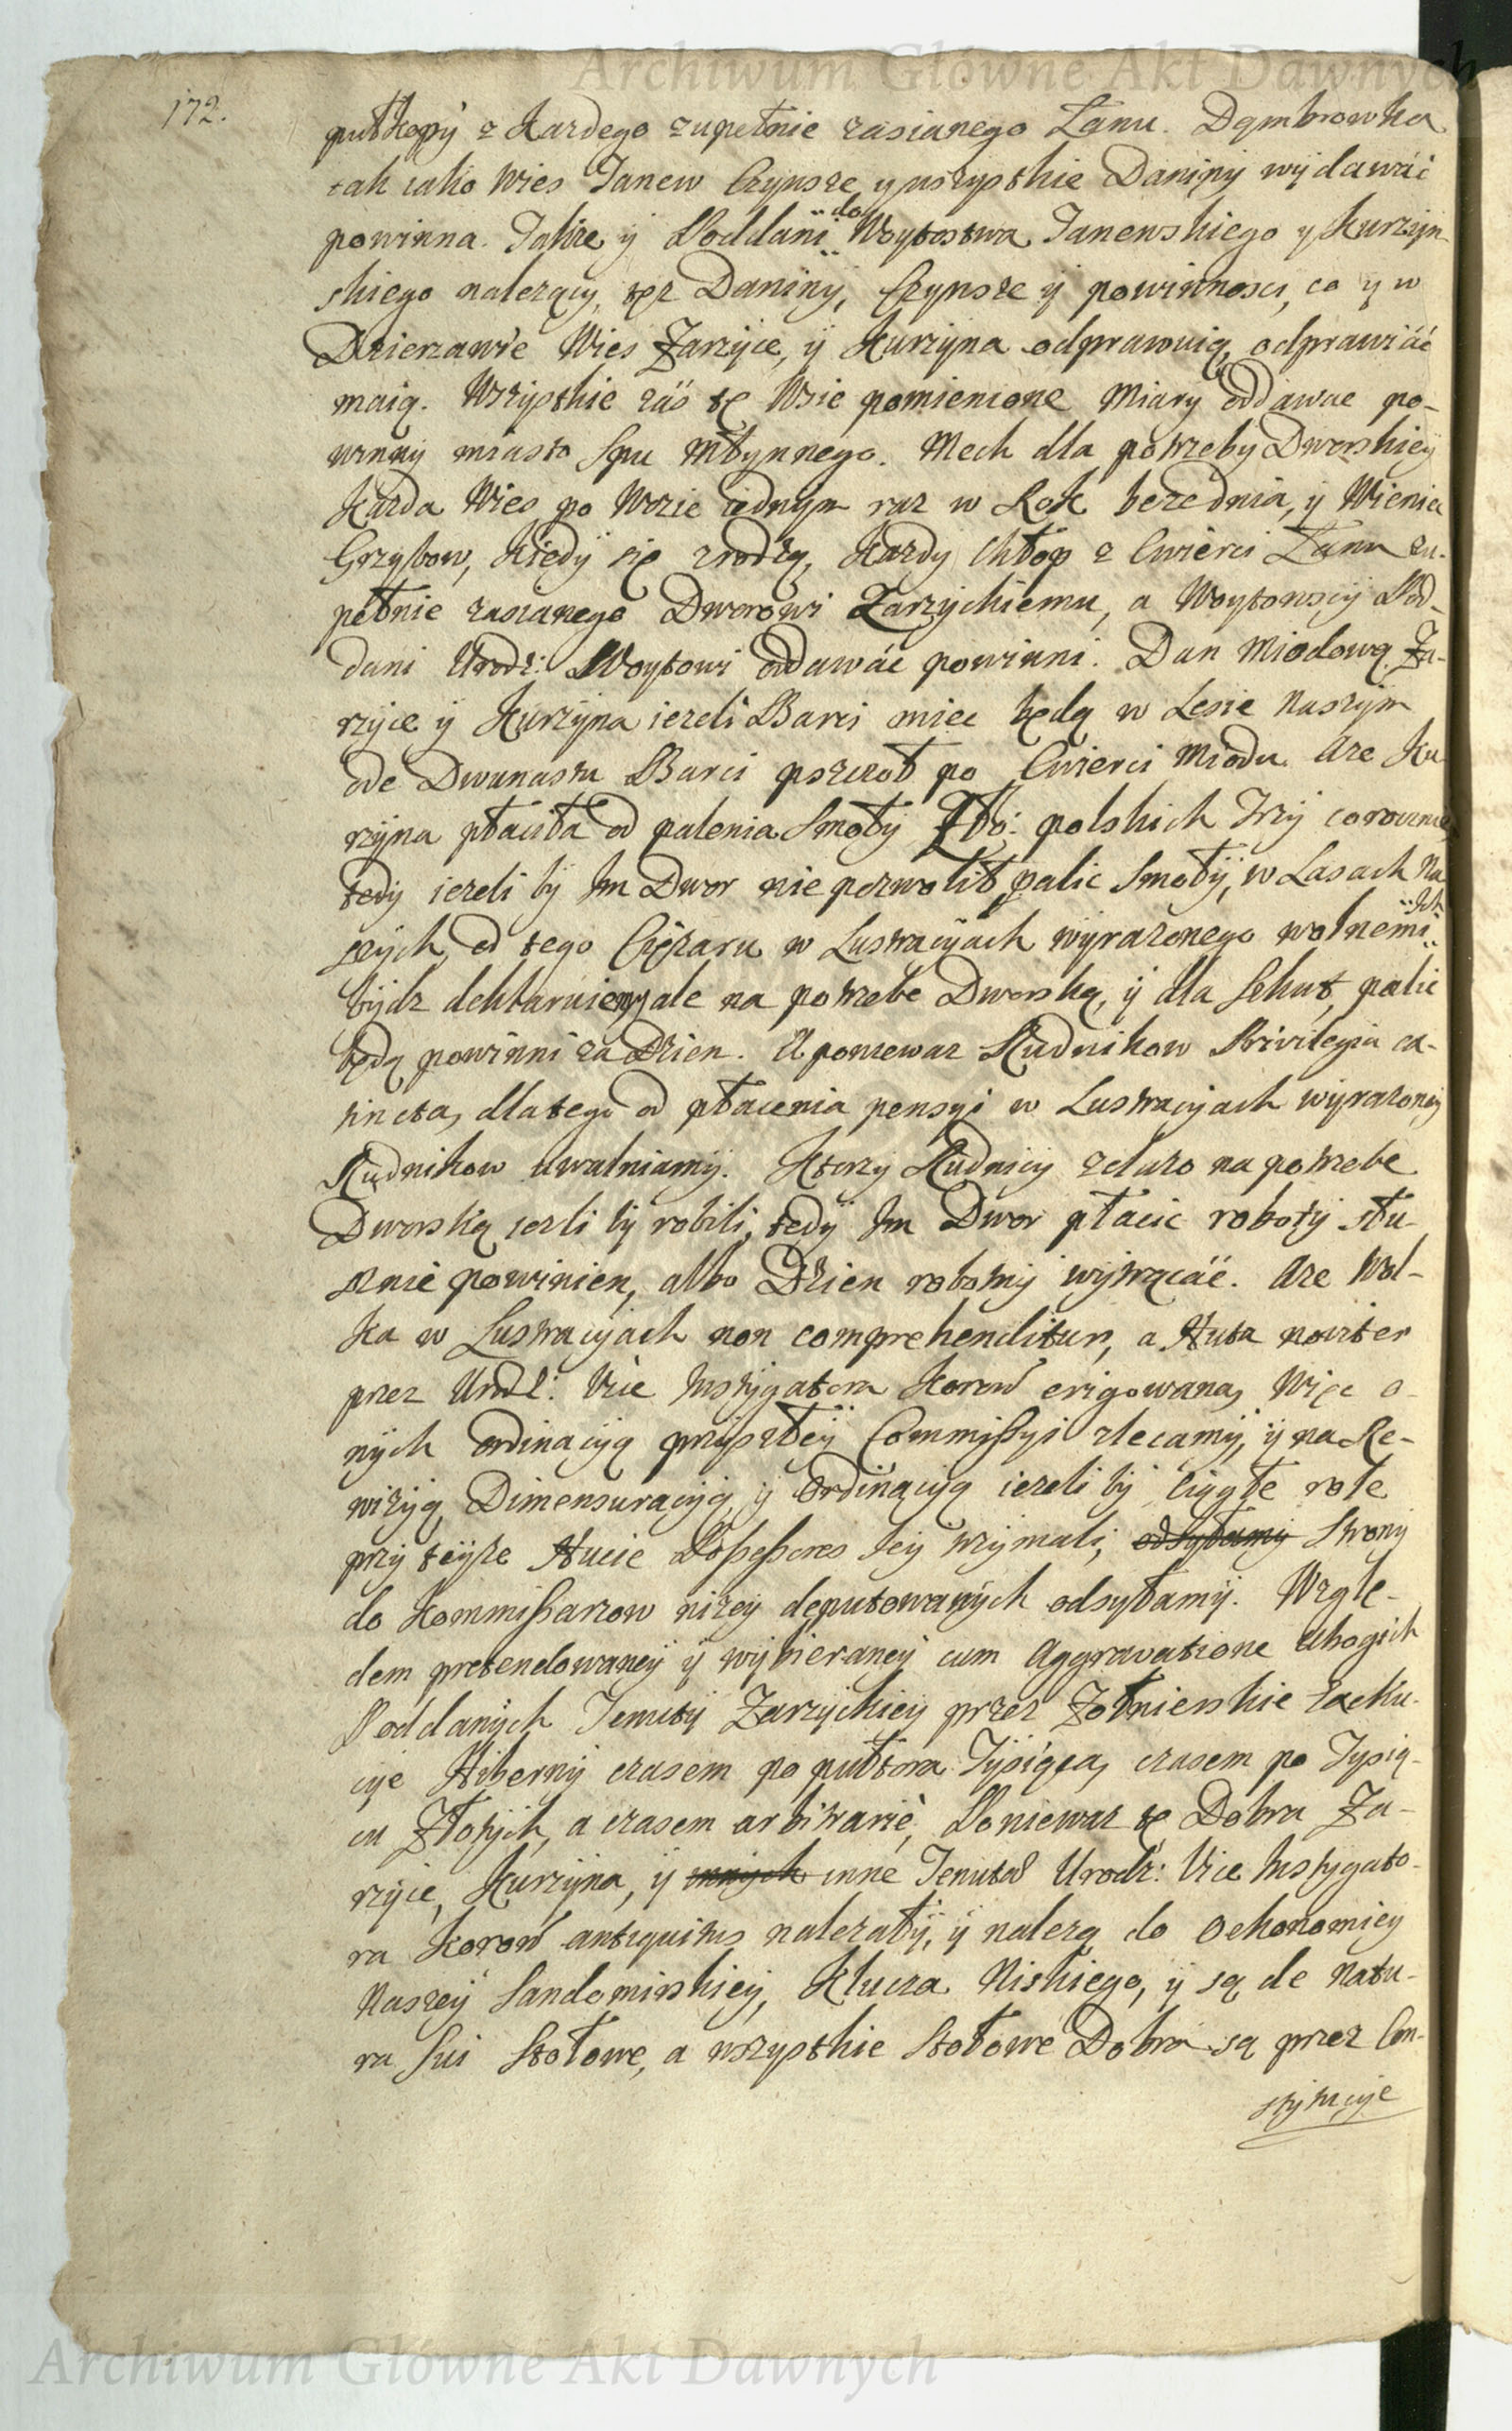 Archiwum Główne Akt Dawnych
172.
pułkopy z Kazdego zupełnie zasianego Łanu. Dąmbrowka
tak iako Wies Janew Czynsze y wszystkie Daniny wydawáć
powinna. Takze ÿ Poddani do Woytostwa Janewskiego y Kurzyn
skiego nalezący, tęz Daniny, Czynsze ÿ powinnosci, co y w
Dzierzawie Wies Zarzyce, ÿ Kurzyna odprawuią, odprawiáć
maią. Wszystkie záś tę Wsie pomienione Miary oddawac po-
winny miasto Spu Młynnego. Mech dla potrzeby Dworskiey
Kazda Wies po Wozie iednym raz w Rok bezednia, ÿ Wieniec
Grzybow, kiedy się zrodzą, Kazdy Chłop z Cwierci Łanu zu-
pełnie zasianego Dworowi Zarzyckiemu, a Woytowscy Pod-
dani Urodz: Woytowi oddawáć powinni. Dan Miodową Za-
rzyce ÿ Kurzyna iezeli Barci miec będą w Lesie Naszym
ode Dwunastu Barci pszczoł po Cwierci Miodu. Aze Ku
rzyna płaciła od palenia Smoły Złło: polskich Trzy corocznie,
tedy iezeli by Im Dwor nie pozwolił palic Smoły, w Lasach Na
szych, od tego Cięzaru w Lustracyach wyrazonego wolnemi Ich
bydz deklaruiemy, ale na potrzebe Dworską, ÿ dla Szkut, palic
będą powinni za Dzien. A poniewaz Rudnikow Privilegia ex-
tincta, dlatego od płacenia pensyi w Lustracyach wyrazoney
Rudnikow uwalniamy. Ktorzy Rudnicy zelazo na potrzebe
Dworską iezli by robili, tedy Im Dwor płacic roboty słu-
sznie powinien, albo Dzien robotny wytrącáć. Aze Wol-
ka w Lustracyach non comprehenditur, a Huta noviter
przez Urodz: Vice Instygatora Koron̄ erigowana, Więc o-
nych ordinacyą przyszłey Commissyi zlecamy, ÿ na Re-
wizyą, Dimensuracyą, ÿ Ordinacyą iezeli by ciągłe role
przy teyze Hucie Possessores Jey trzymali, odsyłamy Strony
do Kommissarzow nizey deputowanych odsyłamy. Wzglę-
dem pretendowaney ÿ wybieraney cum Aggravatione Ubogich
Poddanych Tenuty Zarzyckiey przez Zołnierskie Exeku-
cye Hiberny czasem po pułtora Tysiąca, czasem po Tysią-
cu Złotych, a czasem arbitrarie, Poniewaz tę Dobra Za-
rzyce, Kurzyna, ÿ innych inne Tenuta Urodz: Vice Instygato-
ra Koron̄ antiquitus nalezały, ÿ nalezą do Oekonomiey
Naszey Sandomirskiey, Klucza Niskiego, ÿ są de natu-
ra Sui Stołowe, a wszystkie Stołowe Dobra są przez Con-
stytucye
Archiwum Główne Akt Dawnych